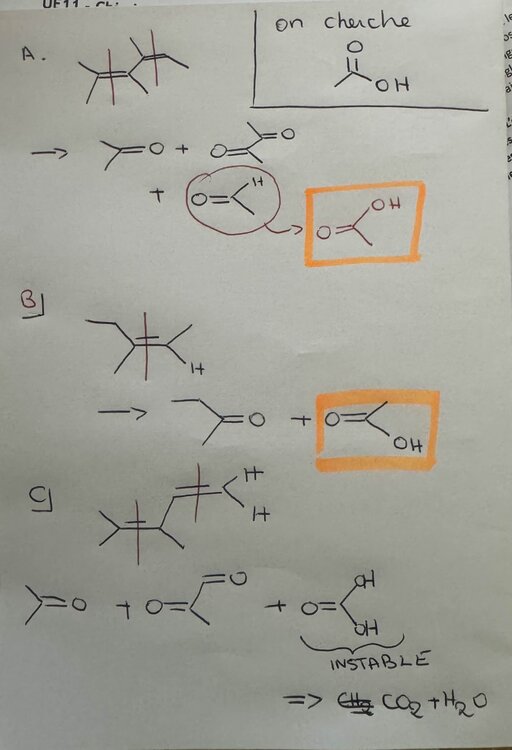 UE11 - Chi
on cherche
A.
O
OH
→ O + O O
+ O H → O OH
B]
H
→ O + O OH
C]
H
H
O + O O + O OH OH
INSTABLE
⇒ CO₂ + H₂O